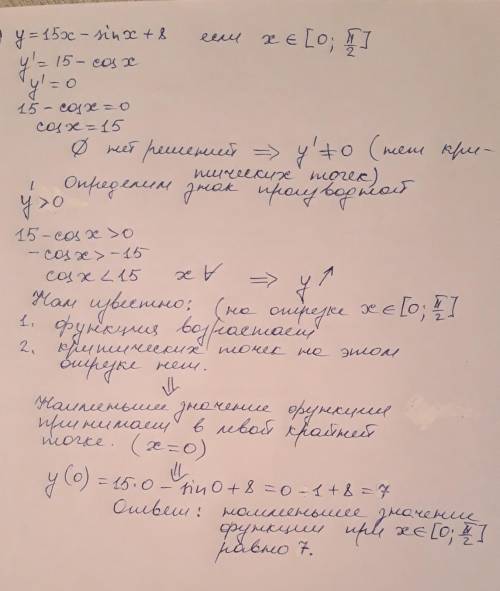 ) y = 15x - sin x + 8 если x ∈ [0; π/2]
y' = 15 - cos x
y' = 0
15 - cos x = 0
cos x = 15
∅ нет решений ⇒ y' ≠ 0 (нет кри-
тических точек)
Определим знак производной
y' > 0
15 - cos x > 0
- cos x > -15
cos x < 15 x ∀ ⇒ y ↑
Нам известно: (на отрезке x ∈ [0; π/2]
1. функция возрастает
2. критических точек на этом
отрезке нет.
⇓
Наименьшее значение функция
принимает в левой крайней
точке. (x = 0)
⇓
y(0) = 15·0 - sin 0 + 8 = 0 - 1 + 8 = 7
Ответ: наименьшее значение
функции при x ∈ [0; π/2]
равно 7.